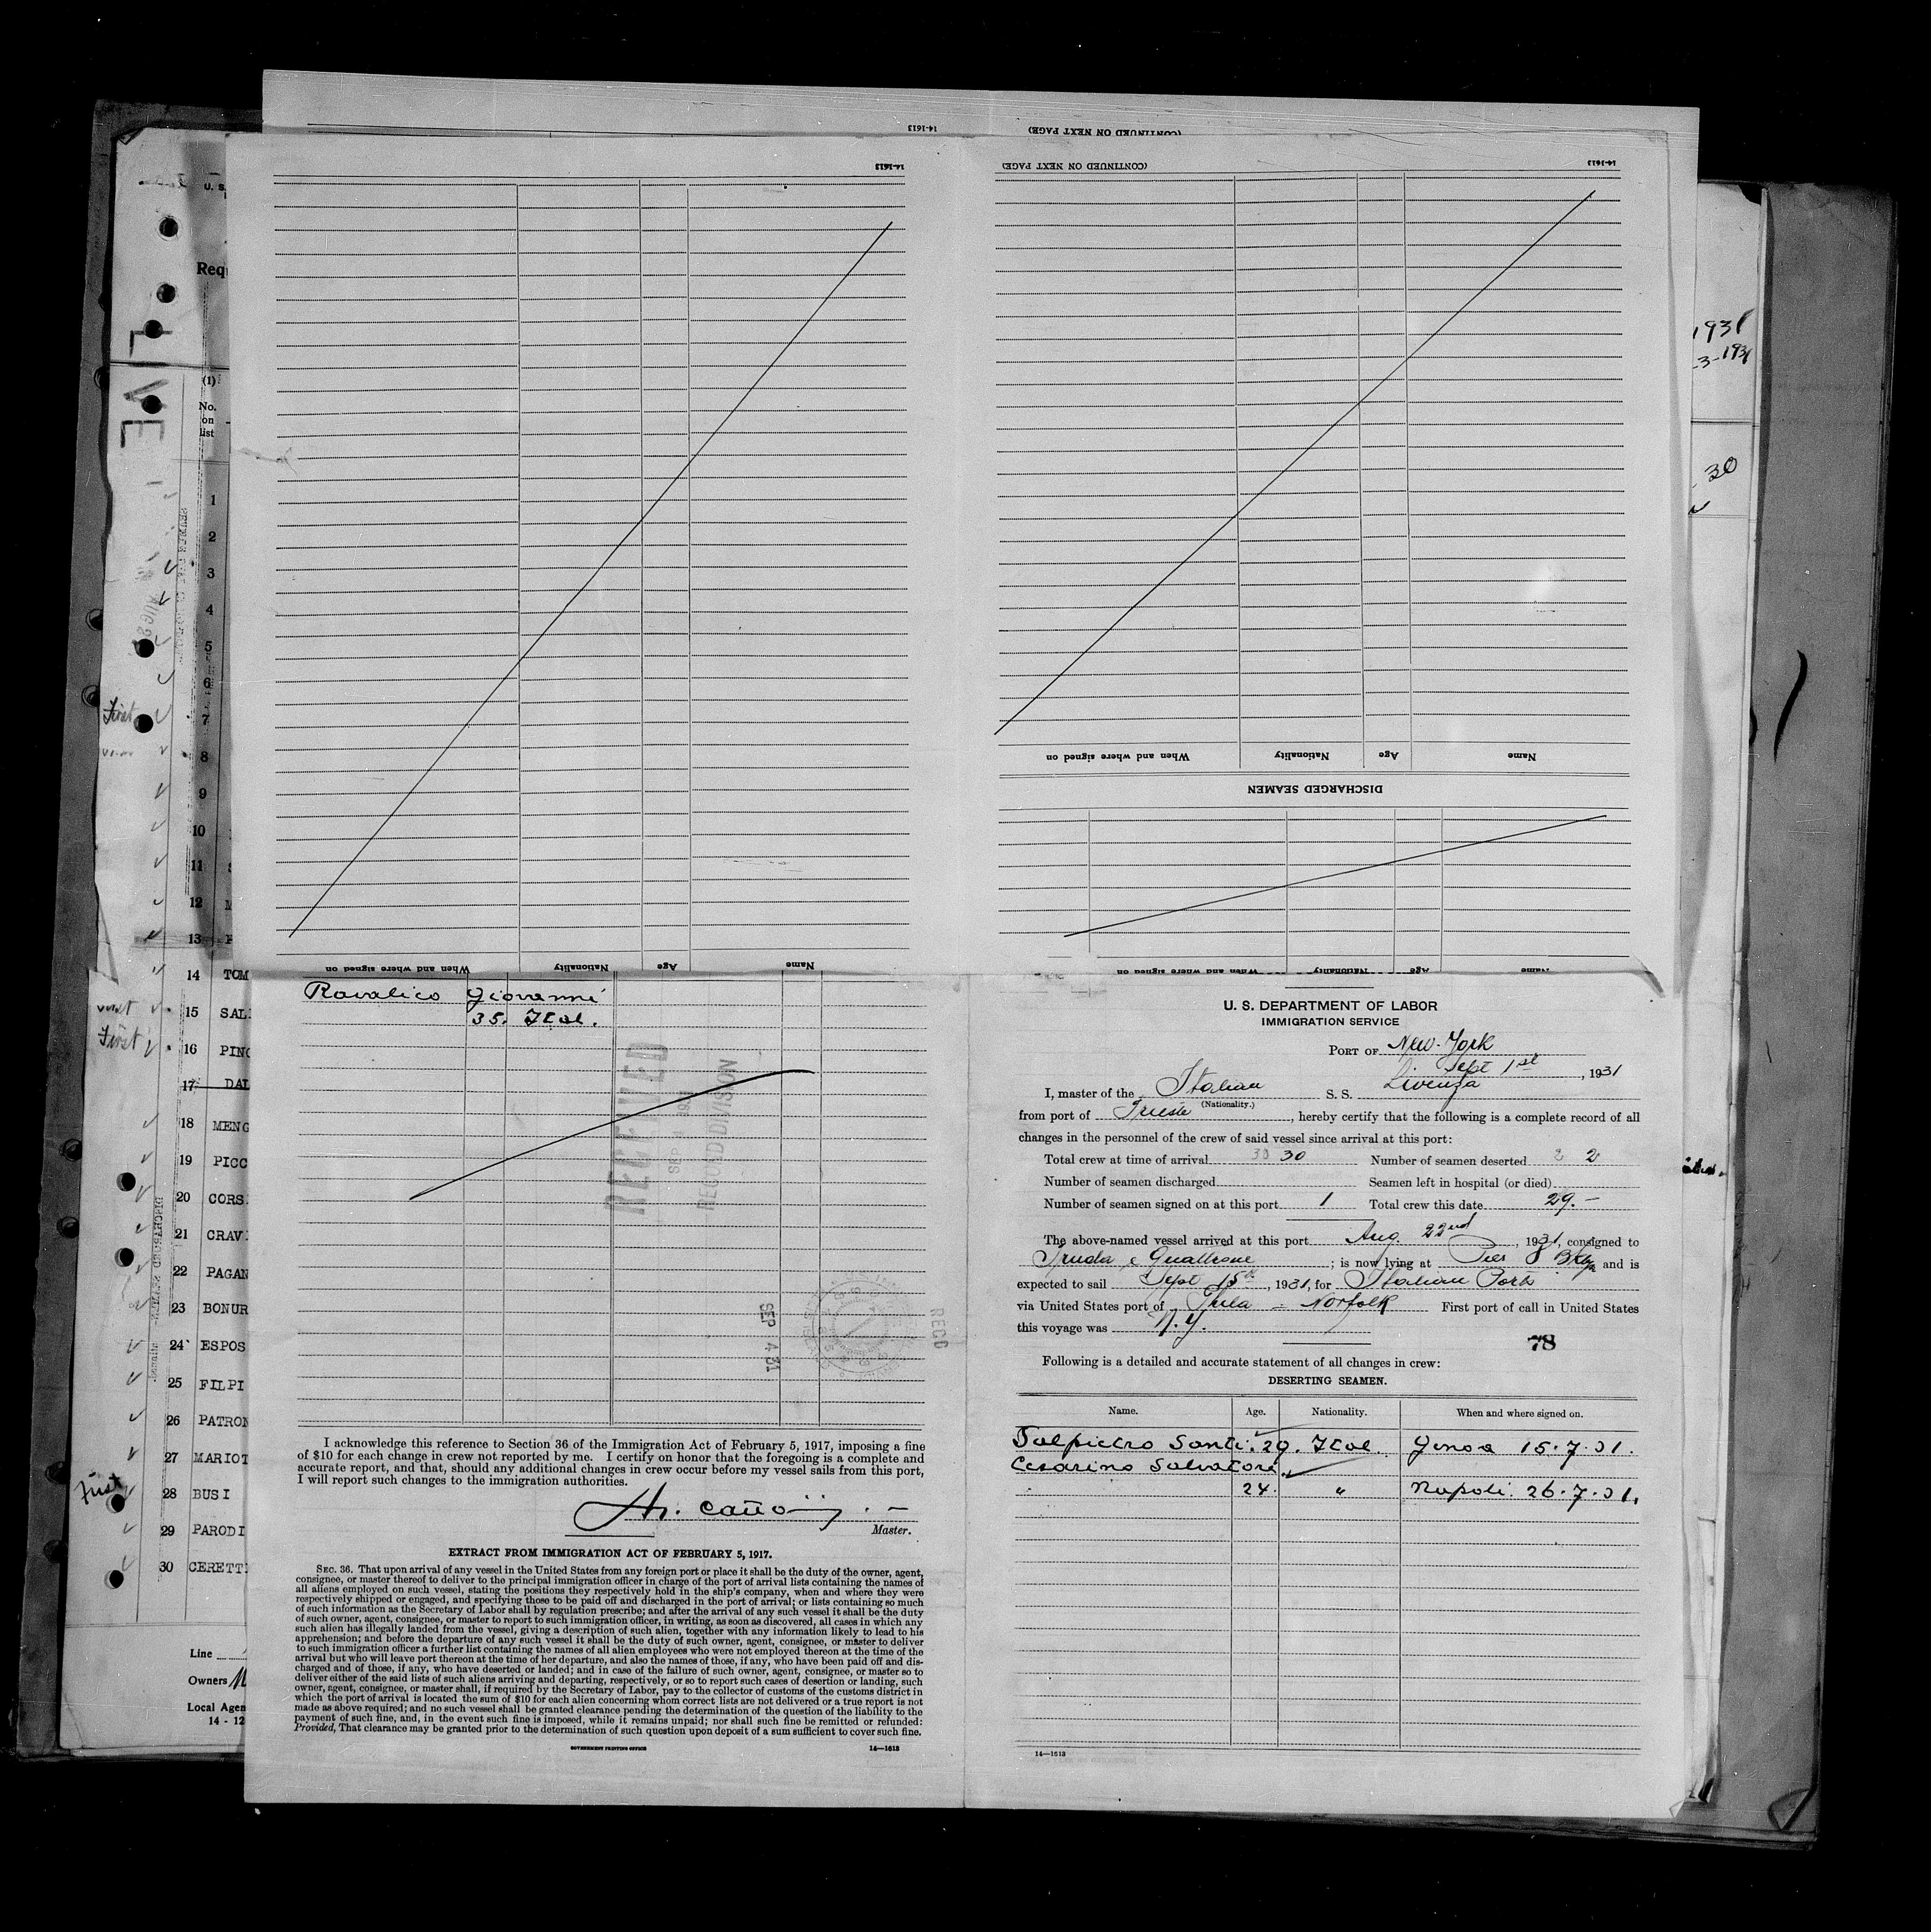 14-1613
(CONTINUED ON NEXT PAGE)
14-1613
(CONTINUED ON NEXT PAGE)
14-1613
When and where signed on
Nationality
Age
Name
DISCHARGED SEAMEN
When and where signed on
Nationality
Age
Name
When and where signed on
Nationality
Age
Name
U. S.
Req
LIVE
(1)
No.
on
list
1
2
3
4
5
6
First 7
8
9
10
11
12 M
13
14 TOM
15 SAL
First 16 PING
17 DAL
18 MENG
19 PICC
20 CORS
21 CRAV
22 PAGAN
23 BONUR
24 ESPOS
25 FILPI
26 PATRON
27 MARIOT
First 28 BUSI
29 PARODI
30 CERETT
Line
Owners
Local Agen
14 - 12
1931
3-1931
30
Ravalico Giovanni
35. Ital.
RECEIVED
SEP
RECORD DIVISION
SEP 4 31
RECD
I acknowledge this reference to Section 36 of the Immigration Act of February 5, 1917, imposing a fine
of $10 for each change in crew not reported by me. I certify on honor that the foregoing is a complete and
accurate report, and that, should any additional changes in crew occur before my vessel sails from this port,
I will report such changes to the immigration authorities.
Master.
EXTRACT FROM IMMIGRATION ACT OF FEBRUARY 5, 1917.
SEC. 36. That upon arrival of any vessel in the United States from any foreign port or place it shall be the duty of the owner, agent,
consignee, or master thereof to deliver to the principal immigration officer in charge of the port of arrival lists containing the names of
all aliens employed on such vessel, stating the positions they respectively hold in the ship's company, when and where they were
respectively shipped or engaged, and specifying those to be paid off and discharged in the port of arrival; or lists containing so much
of such information as the Secretary of Labor shall by regulation prescribe; and after the arrival of any such vessel it shall be the duty
of such owner, agent, consignee, or master to report to such immigration officer, in writing, as soon as discovered, all cases in which any
such alien has illegally landed from the vessel, giving a description of such alien, together with any information likely to lead to his
apprehension; and before the departure of any such vessel it shall be the duty of such owner, agent, consignee, or master to deliver
to such immigration officer a further list containing the names of all alien employees who were not employed thereon at the time of the
arrival but who will leave port thereon at the time of her departure, and also the names of those, if any, who have been paid off and dis-
charged and of those, if any, who have deserted or landed; and in case of the failure of such owner, agent, consignee, or master so to
deliver either of the said lists of such aliens arriving and departing, respectively, or so to report such cases of desertion or landing, such
owner, agent, consignee, or master shall, if required by the Secretary of Labor, pay to the collector of customs of the customs district in
which the port of arrival is located the sum of $10 for each alien concerning whom correct lists are not delivered or a true report is not
made as above required; and no such vessel shall be granted clearance pending the determination of the question of the liability to the
payment of such fine, and, in the event such fine is imposed, while it remains unpaid; nor shall such fine be remitted or refunded:
Provided, That clearance may be granted prior to the determination of such question upon deposit of a sum sufficient to cover such fine.
GOVERNMENT PRINTING OFFICE 14—1613
U. S. DEPARTMENT OF LABOR
IMMIGRATION SERVICE
PORT OF New-York
Sept 1st, 1931
I, master of the Italian S. S. Livenza
(Nationality.)
from port of Trieste, hereby certify that the following is a complete record of all
changes in the personnel of the crew of said vessel since arrival at this port:
Total crew at time of arrival 30 30 Number of seamen deserted 2 2
Number of seamen discharged Seamen left in hospital (or died)
Number of seamen signed on at this port 1 Total crew this date 29.-
The above-named vessel arrived at this port Aug. 22nd, 1931, consigned to
Truda & Quattrone; is now lying at Pier 8 Bklyn and is
expected to sail Sept 15th, 1931, for Italian Ports
via United States port of Phila - Norfolk First port of call in United States
this voyage was N.Y.
78
Following is a detailed and accurate statement of all changes in crew:
DESERTING SEAMEN.
Name. Age. Nationality. When and where signed on.
Salpietro Santi. 29. Ital. Genoa 15.7.31.
Cesarino Salvatore
24. " Napoli. 26.7.31.
14—1613